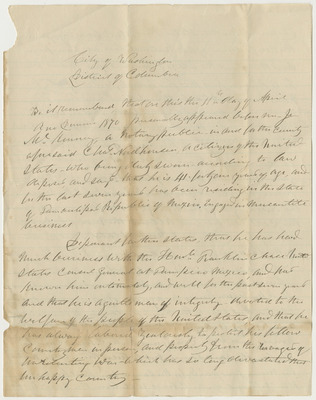 City of Washington
District of Columbia
Be it remembered that on this the 11th day of April
Ano Domini 1870 personally appeared before me Ja
a Notary public in and for the county
aforesaid C a Citizen of the United
States who being duly sworn according to law
deposes and says that he is 41 years of age, and
for the last seven years has been residing in the state
of Tamaulipas Republic of Mexico, engaged in mercantile
business
Deponent further states, that he has had
much business with the Honl. Franklin Chase United
States Consul General at Tampico Mexico, and has
known him intimately and well for the past seven years
and that he is a gentleman of integrity devoted to the
welfare of the people of the United States and that he
has always labored zealously to protect his fellow
Countrymen in person, and property from the ravages of
unrelenting War which has so long devastated that
unhappy Country